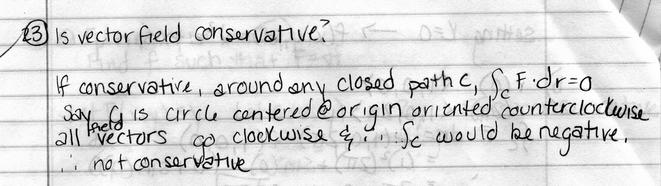 23 Is vector field conservative?
If conservative, around any closed path C, ∫c F·dr=0
Say C₁ is circle centered @ origin oriented counterclockwise
all field vectors go clockwise & ∴ ∫c would be negative,
∴ not conservative